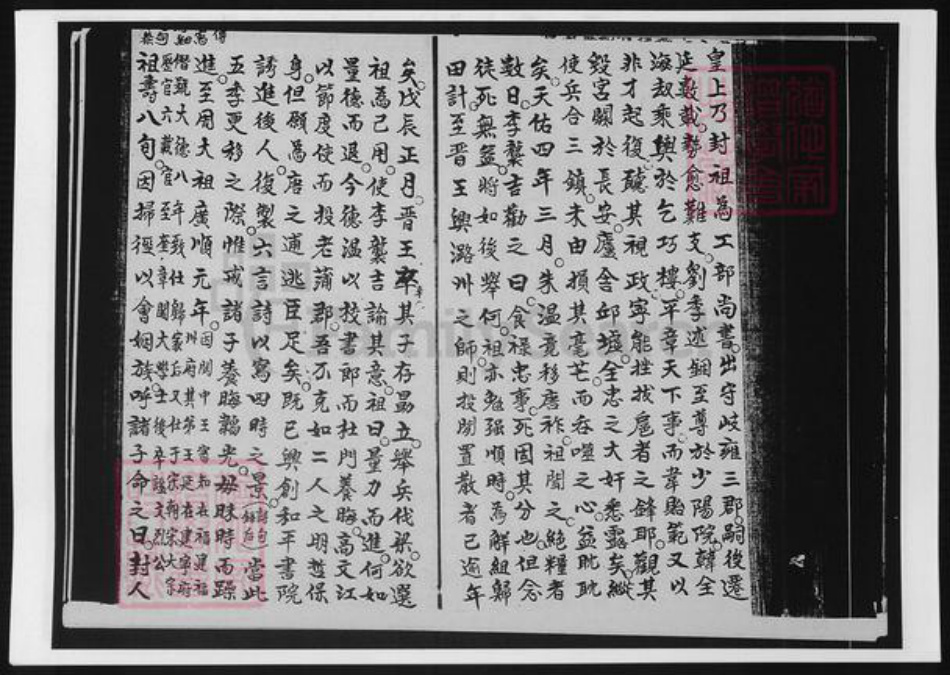 皇上乃封祖為工部尚書。出守岐雍三郡。嗣後遷
延數載。勢愈難支。劉季述錮至尊於少陽院。韓全
海刼乘輿於乞巧樓。平章天下事。而韋貽範又以
非才起復。醜其視政。寧能挫拔扈者之鋒耶。觀其
毀宮闕於長安。廬舍邱墟。全忠之大奸悉露矣。縱
使兵合三鎮。未由損其毫芒。而吞噬之心。益眈眈
矣。天佑四年三月。朱溫竟移唐祚。祖聞之。絕糧者
數日。李襲吉勸之曰。食祿忠事。死固其分也。但念
徒死無益。將如後舉何。祖亦勉强順時。為解組歸
田計。至晋王興潞州之師。則投閒置散者已逾年
矣。戊辰正月。晋王卒。其子存勗立。舉兵伐梁。欲選
祖為己用。使李襲吉諭其意。祖曰。量力而進。何如
量德而退。今德溫以校書郎而杜門養晦。高文江
以節度使而投老蒲郡。吾不克如二人之明哲保
身。但願為唐之逋逃臣足矣。既已興創和平書院
誘進後人。復製六言詩以寫四時之景。當此
五季更移之際。惟戒諸子養晦韜光。毋昧時而躁
進。至周太祖廣順元年。
祖壽八旬。因掃徑以會姻族。呼諸子命之曰。對人